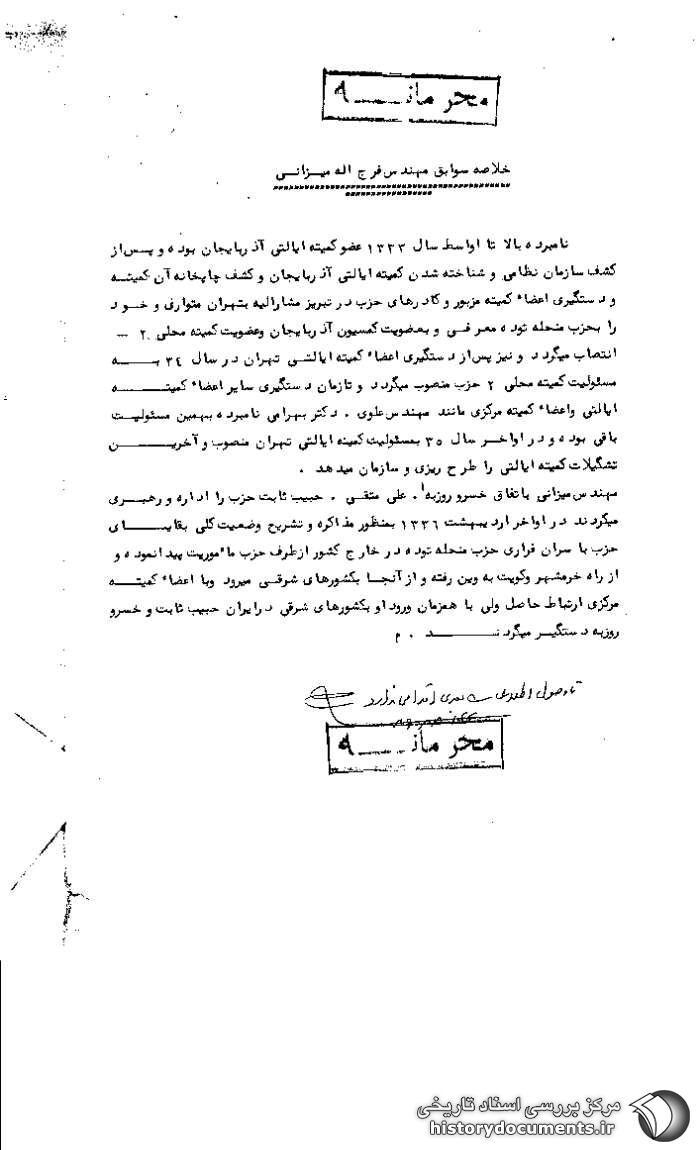 محرمانه
خلاصه سوابق مهندس فرج اله میزانی
نامبرده بالا تا اواسط سال ۱۳۳۳ عضو کمیته ایالتی آذربایجان بوده و پس از
کشف سازمان نظامی و شناخته شدن کمیته ایالتی آذربایجان و کشف چاپخانه آن کمیته
و دستگیری اعضاء کمیته مزبور و کادرهای حزب در تبریز مشارالیه بتهران متواری و خود
را بحزب منحله توده معرفی و بعضویت کمسیون آذربایجان وعضویت کمیته محلی ۲ ــ
انتصاب میگردد و نیز پس از دستگیری اعضاء کمیته ایالتی تهران در سال ۳٤ به
مسئولیت کمیته محلی ۲ حزب منصوب میگردد و تازمان دستگیری سایر اعضاء کمیته
ایالتی واعضاء کمیته مرکزی مانند مهندس علوی . دکتر بهرامی نامبرده بهمین مسئولیت
باقی بوده و در اواخر سال ۳۵ بمسئولیت کمیته ایالتی تهران منصوب و آخرین
تشگیلات کمیته ایالتی را طرح ریزی و سازمان میدهد .
مهندس میزانی باتفاق خسرو روزبه . علی متقی . حبیب ثابت حزب را اداره و رهبری
میگردند در اواخر اردیبهشت ۱۳۳٦ بمنظور مذاکره و تشریح وضعیت کلی بقایای
حزب با سران فراری حزب منحله توده در خارج کشور ازطرف حزب ماٴموریت پیدا نموده و
از راه خرمشهر وکویت به وین رفته و از آنجا بکشورهای شرقی میرود وبا اعضاء کمیته
مرکزی ارتباط حاصل ولی با همزمان ورود او بکشورهای شرقی درایران حبیب ثابت و خسرو
روزبه دستگیر میگردند . م
تا وصول اطلاعات بعدی اقدامی ندارد
محرمانه
مرکز بررسی اسناد تاریخی
historydocuments.ir